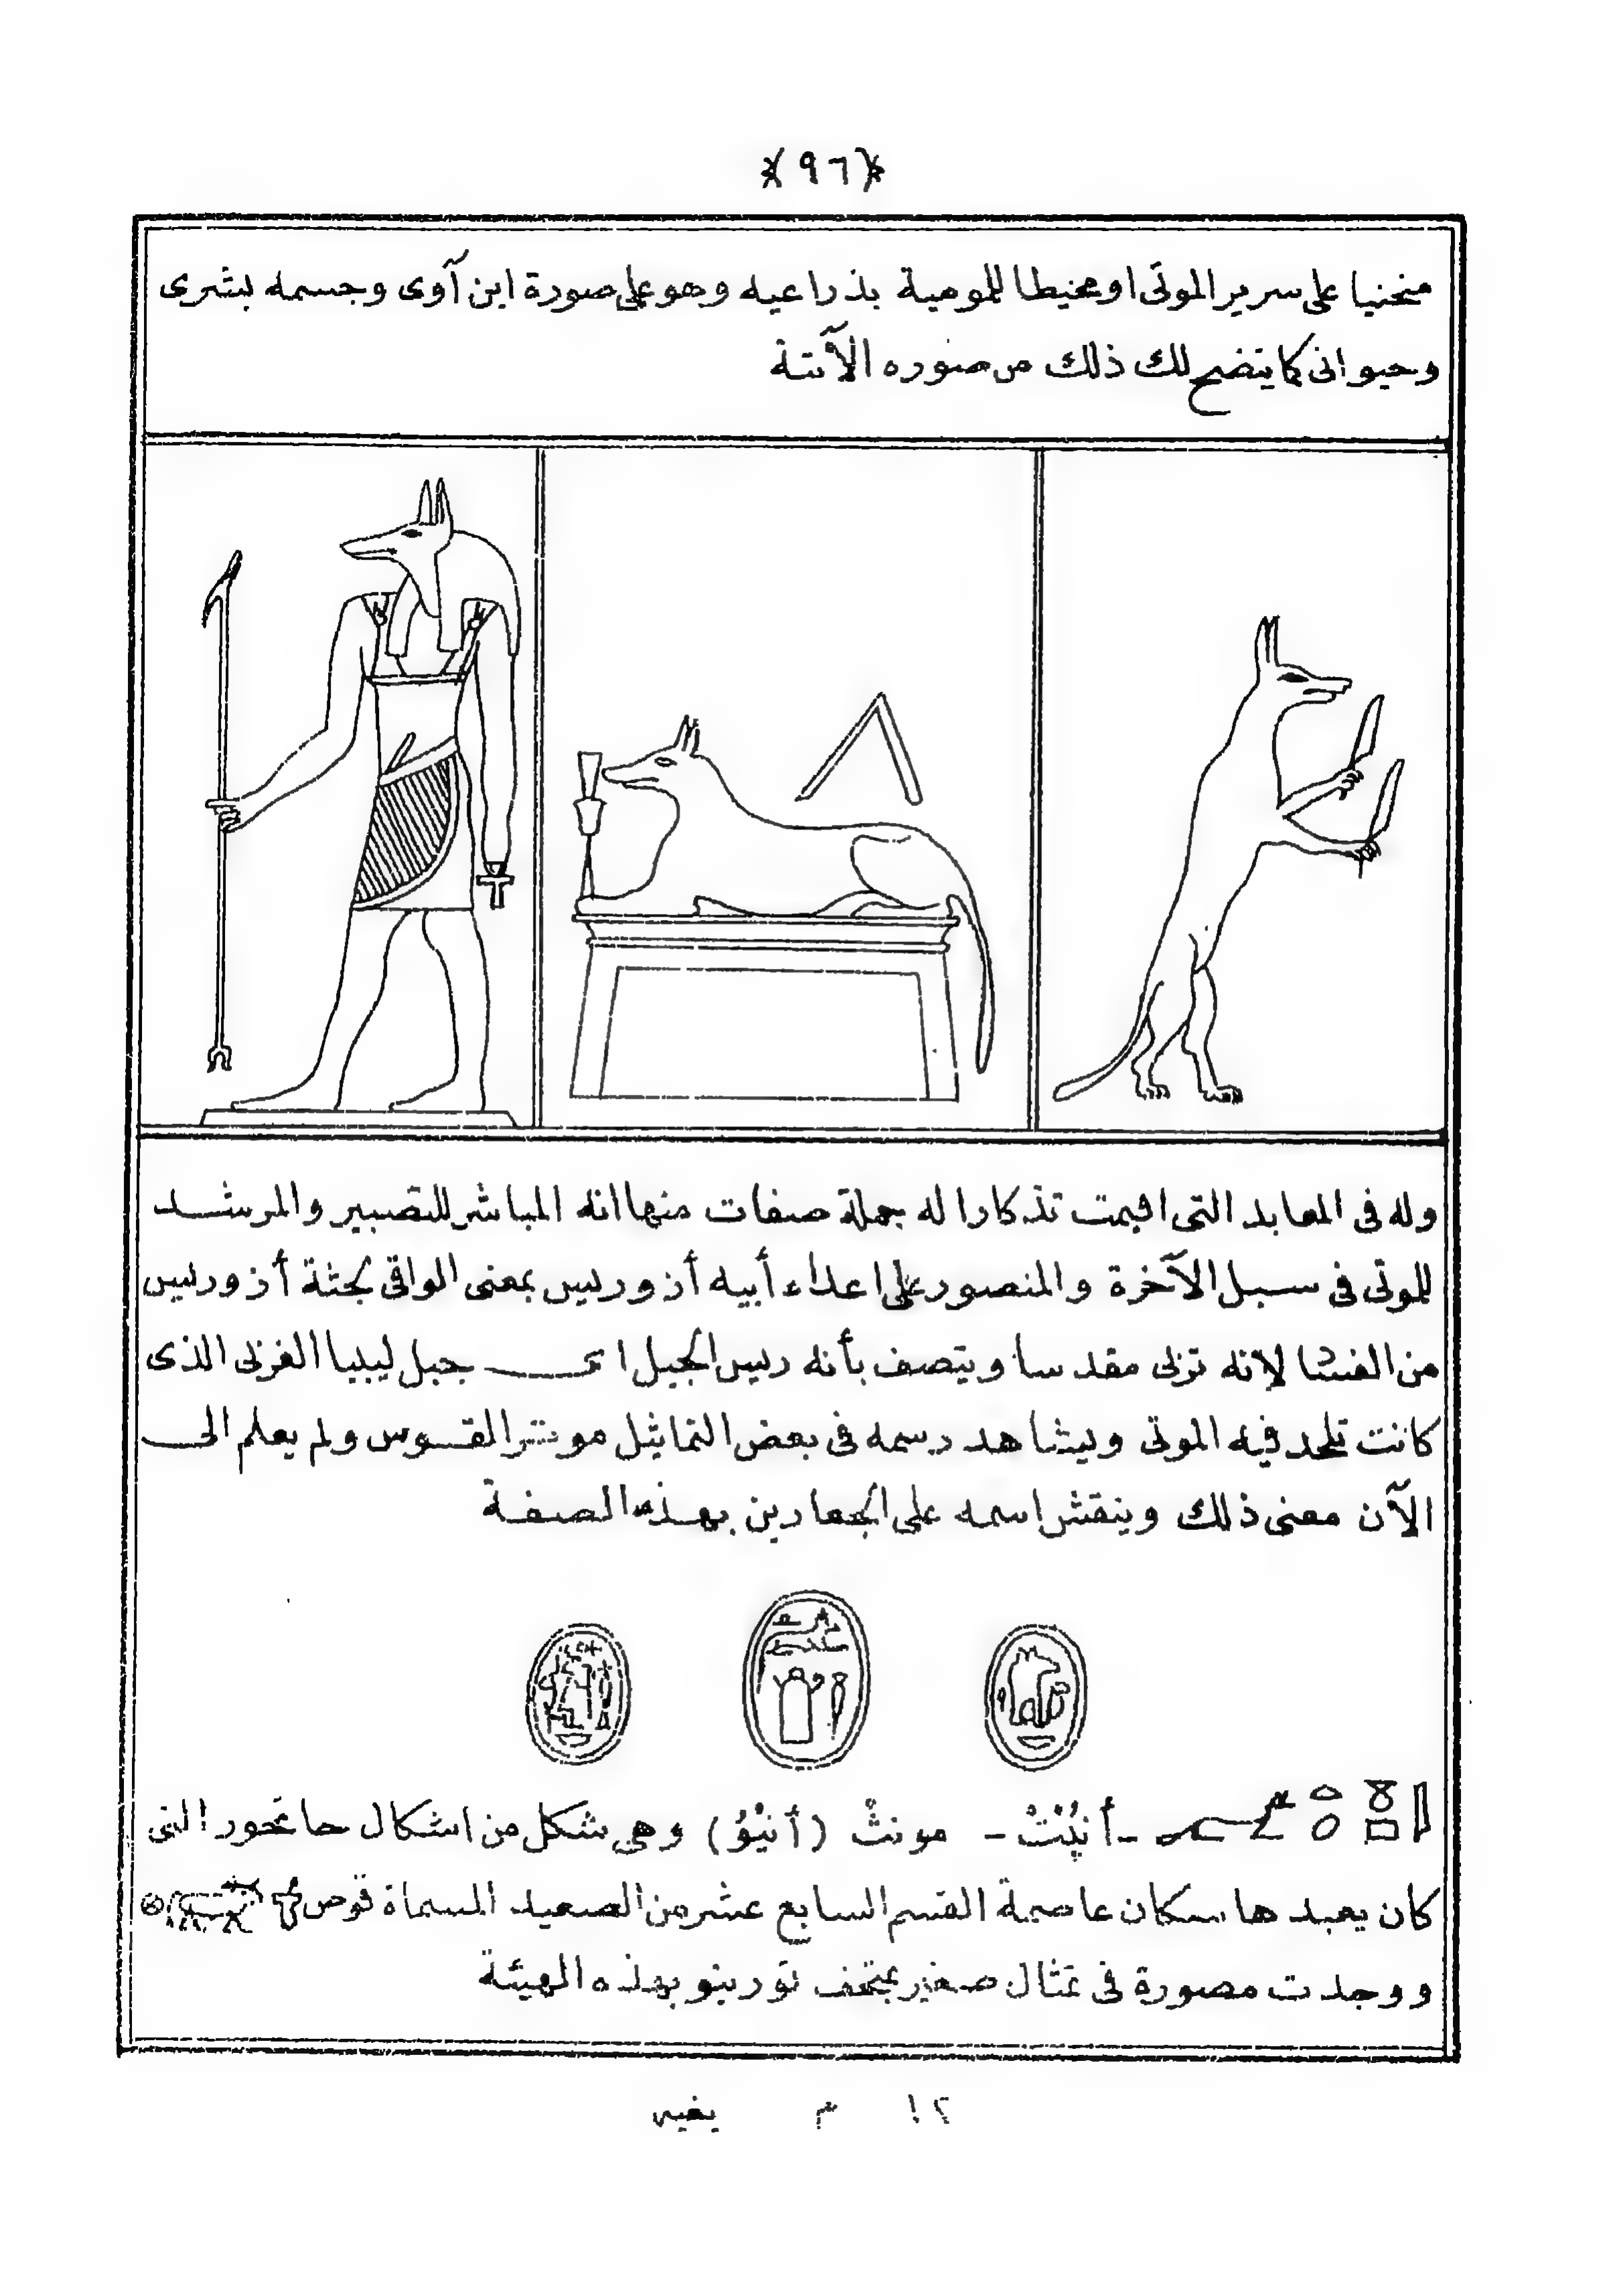 ﴿٩٦﴾
منحنيا على سرير الموتى او محيطا للمومية بذراعيه وهو على صورة ابن آوى وجسمه بشرى
وحيوانى كما يتضح لك ذلك من صوره الآتية
وله فى المعابد التى اقيمت تذكارا له جملة صفات منها انه المباشر للتصبير والمرشد
للموتى فى سبل الآخرة والمنصور على اعداء أبيه أزوريس بمعنى الواقى لجثة أزوريس
من الفساد لانه تربى مقدسا ويتصف بأنه رئيس الجبل اى جبل ليبيا الغربى الذى
كانت تلحد فيه الموتى ويشاهد رسمه فى بعض التماثيل موترا القوس ولم يعلم الى
الآن معنى ذلك وينقش اسمه على الجعارين بهذه الصفة
- أنپت - مونث (أنپو) وهى شكل من اشكال حاتحور التى
كان يعبدها سكان عاصمة القسم السابع عشر من الصعيد المسماة قوص
ووجدت مصورة فى تمثال صغير بمتحف تورينو بهذه الهيئة
١٢ م بغيه